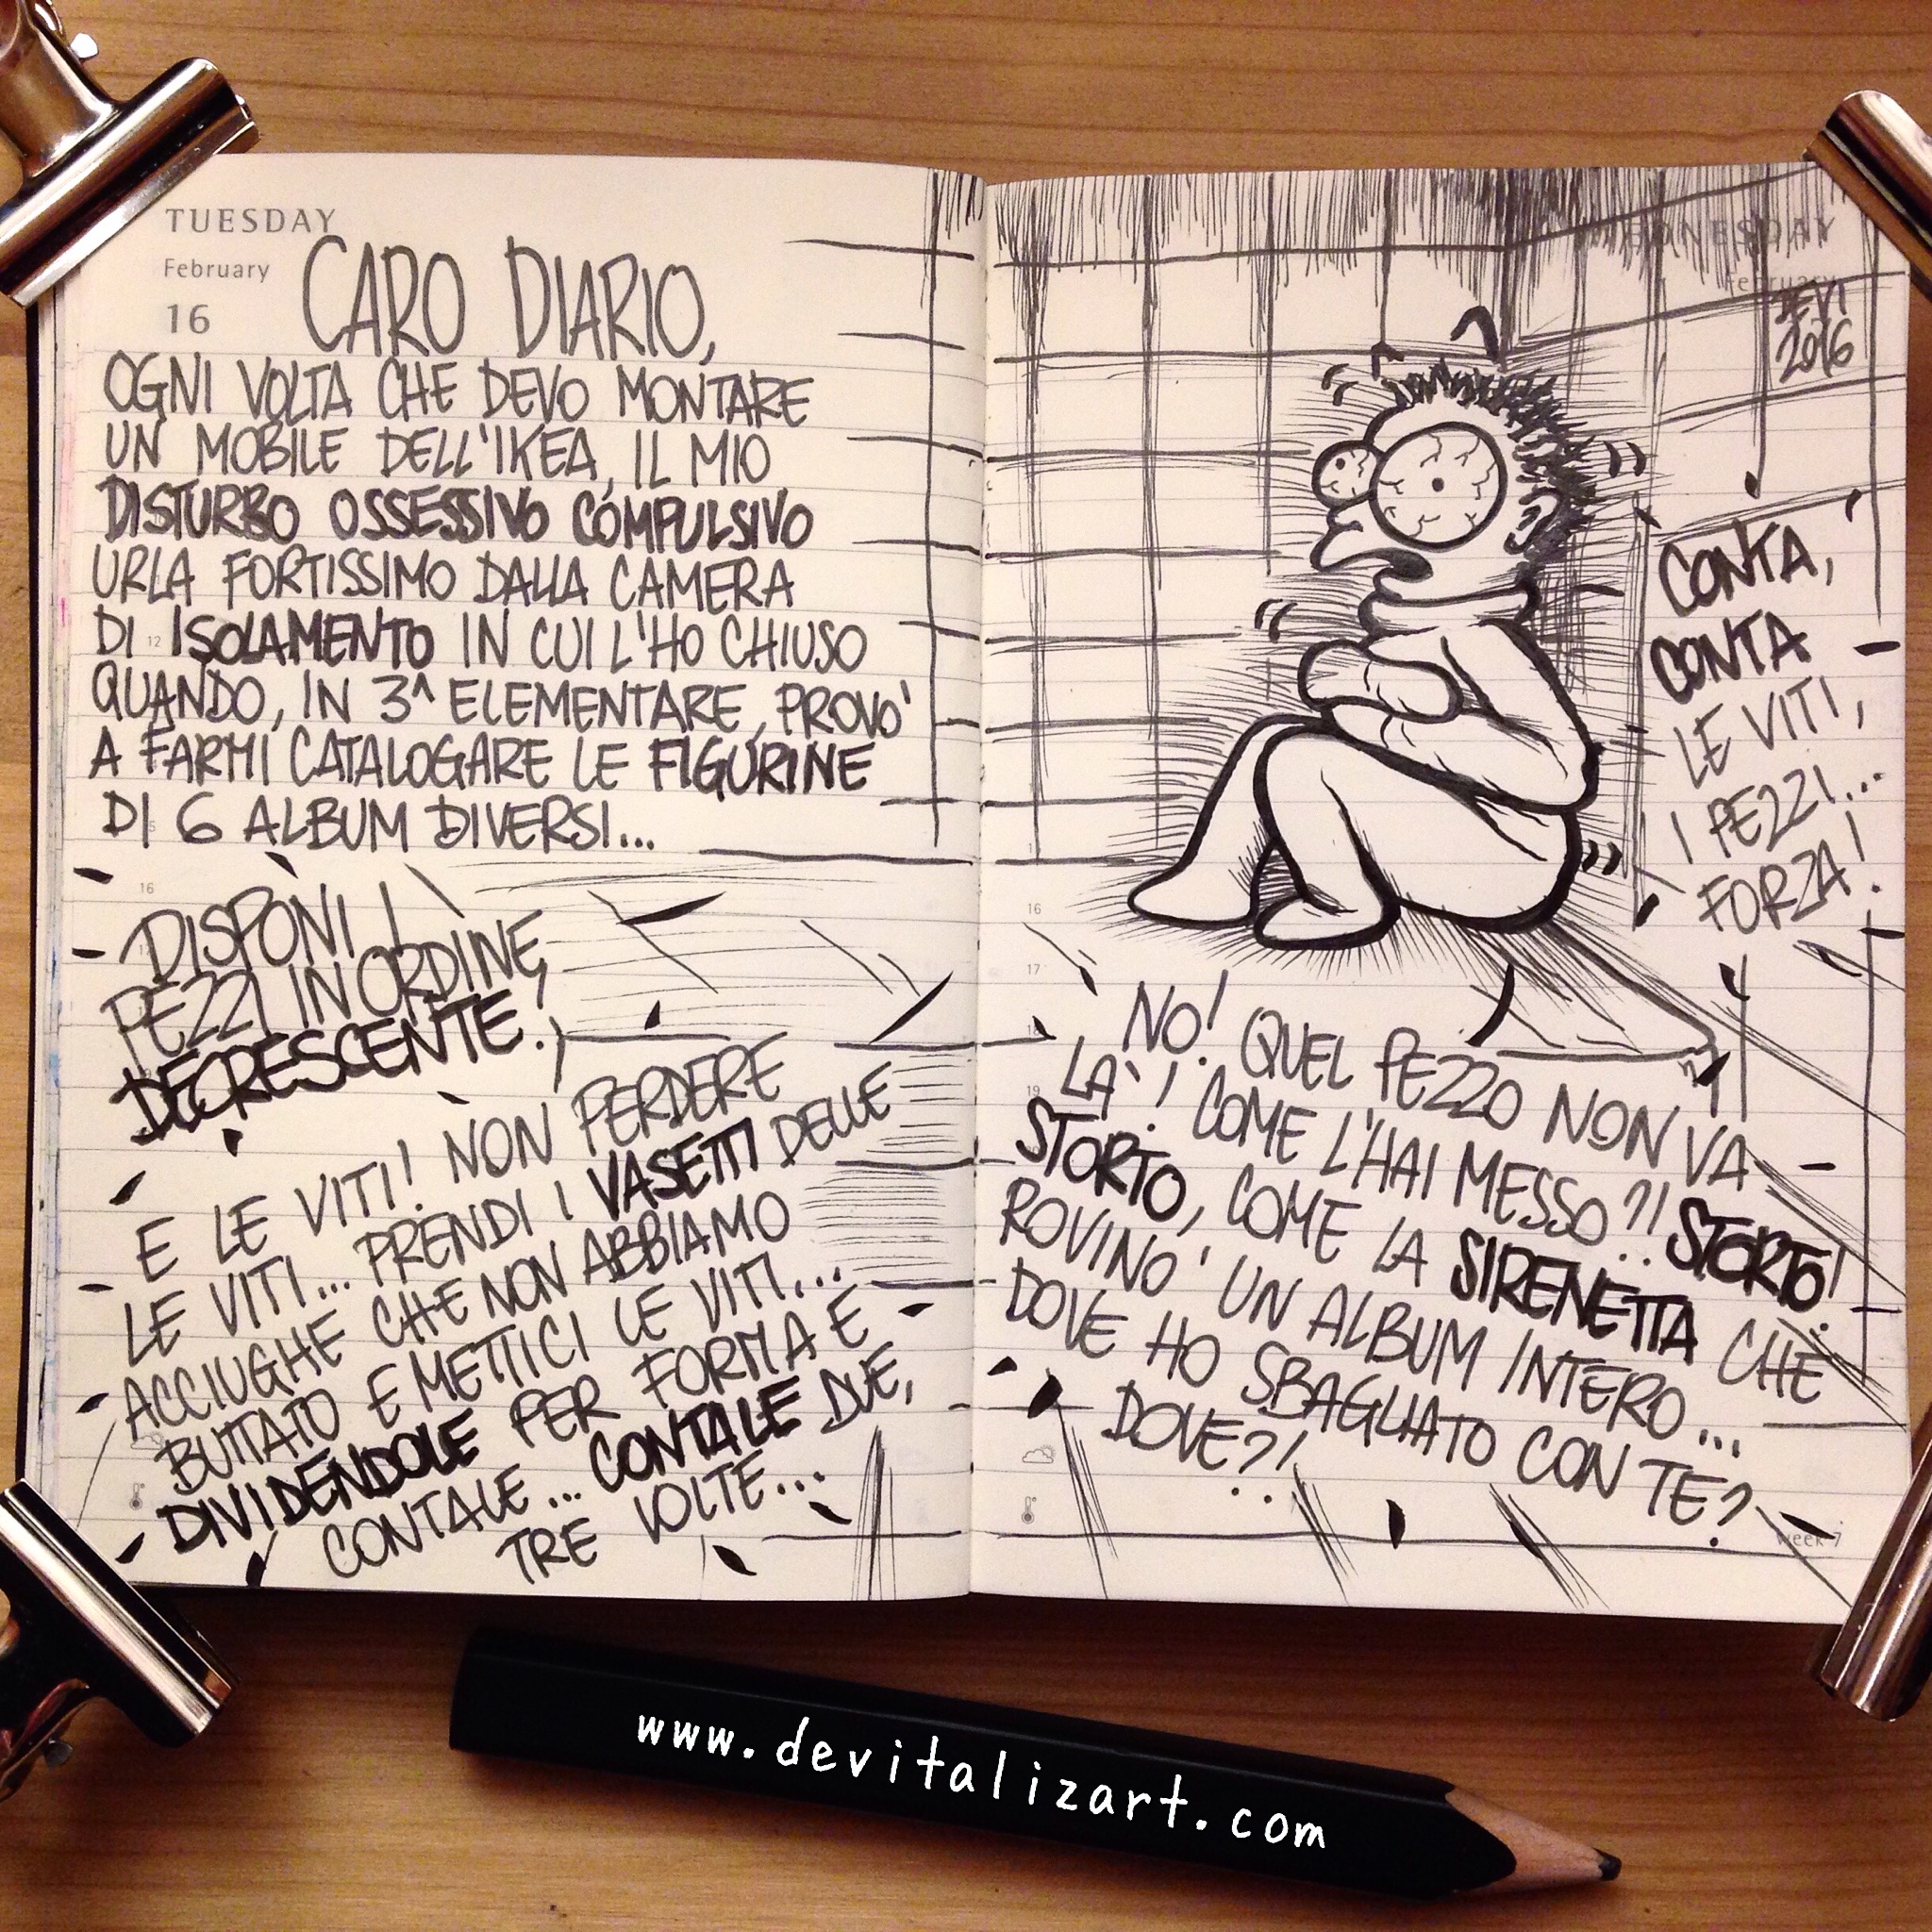 TUESDAY
February
16
CARO DIARIO,
OGNI VOLTA CHE DEVO MONTARE
UN MOBILE DELL'IKEA, IL MIO
DISTURBO OSSESSIVO COMPULSIVO
URLA FORTISSIMO DALLA CAMERA
DI 12 ISOLAMENTO IN CUI L'HO CHIUSO
QUANDO, IN 3^ ELEMENTARE, PROVO'
A FARMI CATALOGARE LE FIGURINE
DI 6 ALBUM DIVERSI...
16
DISPONI I
PEZZI IN ORDINE
DECRESCENTE!
E LE VITI! NON PERDERE
LE VITI... PRENDI I VASETTI DELLE
ACCIUGHE CHE NON ABBIAMO
BUTTATO E METTICI LE VITI...
DIVIDENDOLE PER FORMA E
CONTALE... CONTALE DUE,
TRE VOLTE...
WEDNESDAY
February
DEVI
2016
CONTA,
CONTA
LE VITI,
I PEZZI...
FORZA!
16
17
19
NO! QUEL PEZZO NON VA
LA'! COME L'HAI MESSO?! STORTO!
STORTO, COME LA SIRENETTA CHE
ROVINO' UN ALBUM INTERO...
DOVE HO SBAGLIATO CON TE?
DOVE?!
week 7
www.devitalizart.com